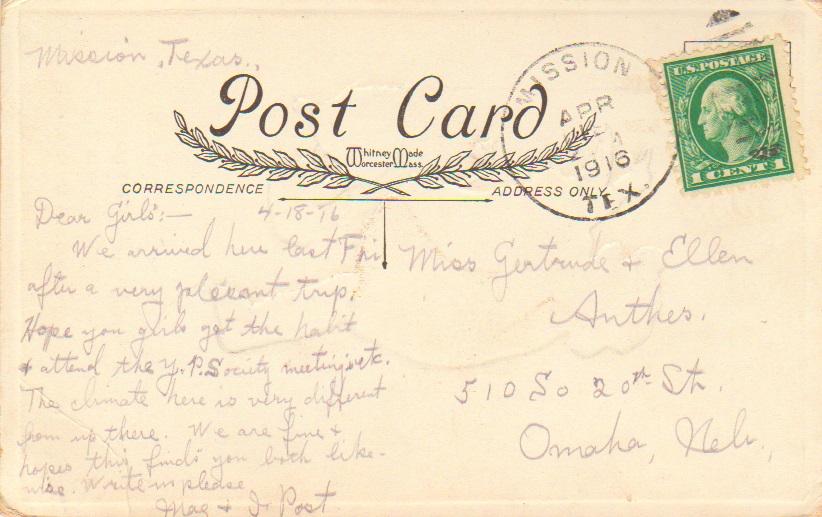 Mission, Texas.,
Post Card
Whitney Made
Worcester Mass.
MISSION
APR
1916
TEX.
U.S. POSTAGE
1 CENT 1
CORRESPONDENCE
ADDRESS ONLY
Dear Girls:— 4-18-16
We arrived here last Fri
after a very pleasant trip.
Hope you girls get the habit
& attend the Y.P. Society meetings etc.
The climate here is very different
from up there. We are fine &
hopes this finds you both like-
wise. Write us please
Mae & Post.
Miss Gertrude & Ellen
Anthes.
510 So 20th St.
Omaha, Nebr.,